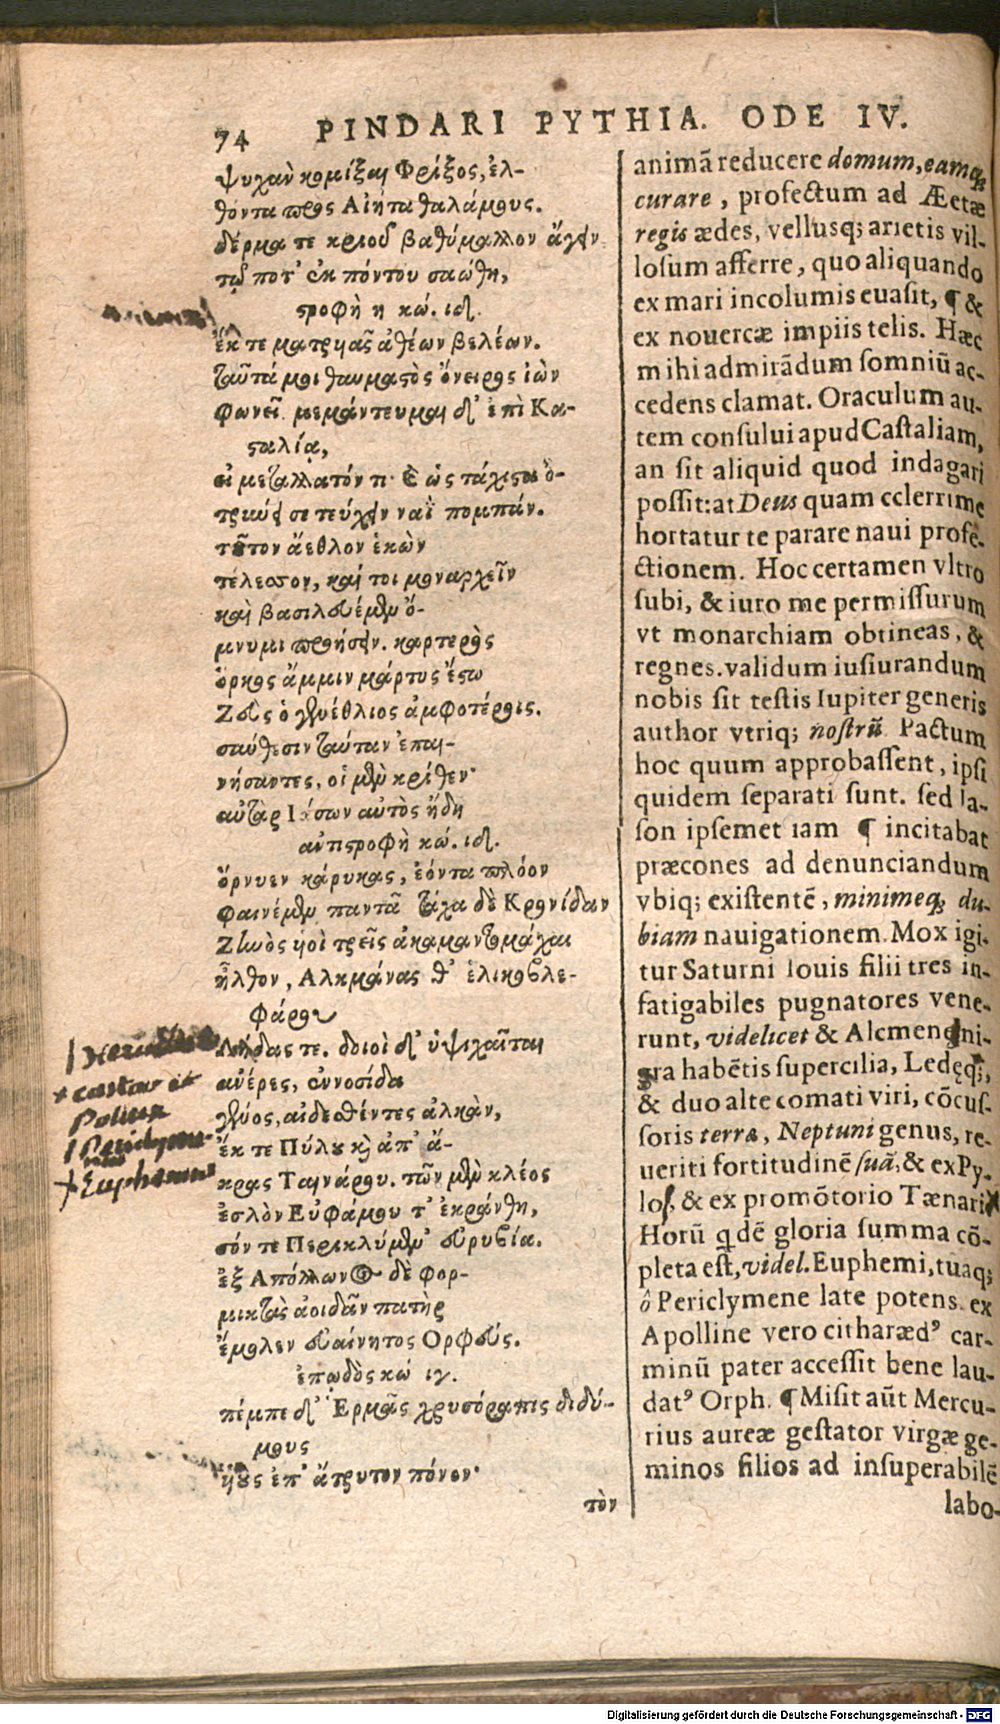 74 PINDARI PYTHIA. ODE IV.
ψυχὰν κομίξαι Φρίξος, ἐλ-
θόντα πρὸς Αἰήτα θαλάμους.
δέρμα τε κριοῦ βαθύμαλλον ἄγειν
τῷ ποτ' ἐκ πόντου σαώθη,
στροφὴ η κώ. ιδ.
ἔκ τε ματρυιᾶς ἀθέων βελέων.
ταῦτά μοι θαυμαστὸς ὄνειρος ἰὼν
φωνεῖ. μεμάντευμαι δ' ἐπὶ Κα-
σταλίᾳ,
εἰ μεταλλατόν τι. καὶ ὡς τάχιστα ὀ-
τρύνει με τεύχειν ναῒ πομπάν.
τοῦτον ἄεθλον ἑκὼν
τέλεσον, καί τοι μοναρχεῖν
καὶ βασιλευέμεν ὄ-
μνυμι προήσειν. καρτερὸς
ὅρκος ἄμμιν μάρτυς ἔστω
Ζεὺς ὁ γενέθλιος ἀμφοτέροις.
σύνθεσιν ταύταν ἐπαι-
νήσαντες, οἱ μὲν κρίθεν·
αὐτὰρ Ιάσων αὐτὸς ἤδη
ἀντιστροφὴ κώ. ιδ.
ὄρνυεν κάρυκας, ἐόντα πλόον
φαινέμεν παντᾶ τάχα δὲ Κρονίδαο
Ζηνὸς υἱοὶ τρεῖς ἀκαμαντομάχαι
ἦλθον, Αλκμάνας θ' ἑλικοβλε-
φάρου
Λήδας τε. δοιοὶ δ' ὑψιχαῖται
ἀνέρες, ἐννοσίδα
γένος, αἰδεσθέντες ἀλκὰν,
ἔκ τε Πύλου καὶ ἀπ' ἄ-
κρας Ταινάρου. τῶν μὲν κλέος
ἐσλὸν Εὐφάμου τ' ἐκράνθη,
σόν τε Περικλύμεν' εὐρυβία.
ἐξ Απόλλωνος δὲ φορ-
μικτὰς ἀοιδᾶν πατὴρ
ἔμολεν εὐαίνητος Ορφεύς.
ἐπῳδὸς κώ ιγ.
πέμπε δ' Ἑρμᾶς χρυσόραπις διδύ-
μους
υἱοὺς ἐπ' ἄτρυτον πόνον·
τὸν
castor et
Pollux
Periclymenus
+ Euphemus
animã reducere domum, eamq;
curare, profectum ad Æetæ
regis ædes, vellusq; arietis vil-
losum afferre, quo aliquando
ex mari incolumis euasit, ¶ &
ex nouercæ impiis telis. Hæc
mihi admirãdum somniũ ac-
cedens clamat. Oraculum au-
tem consului apud Castaliam,
an sit aliquid quod indagari
possit: at Deus quam celerrime
hortatur te parare naui profe-
ctionem. Hoc certamen vltro
subi, & iuro me permissurum
vt monarchiam obtineas, &
regnes. validum iusiurandum
nobis sit testis Iupiter generis
author vtriq; nostrũ. Pactum
hoc quum approbassent, ipsi
quidem separati sunt. sed Ia-
son ipsemet iam ¶ incitabat
præcones ad denunciandum
vbiq; existentẽ, minimeq; du-
biam nauigationem. Mox igi-
tur Saturni Iouis filii tres in-
fatigabiles pugnatores vene-
runt, videlicet & Alcmenę ni-
gra habẽtis supercilia, Ledęq;,
& duo alte comati viri, cõcus-
soris terræ, Neptuni genus, re-
ueriti fortitudinẽ suã, & ex Py-
lo, & ex promõtorio Tænari.
Horũ qdẽ gloria summa cõ-
pleta est, videl. Euphemi, tuaq;
ô Periclymene late potens. ex
Apolline vero citharædꝰ car-
minũ pater accessit bene lau-
datꝰ Orph. ¶ Misit aũt Mercu-
rius aureæ gestator virgæ ge-
minos filios ad insuperabilẽ
labo-
Digitalisierung gefördert durch die Deutsche Forschungsgemeinschaft - DFG